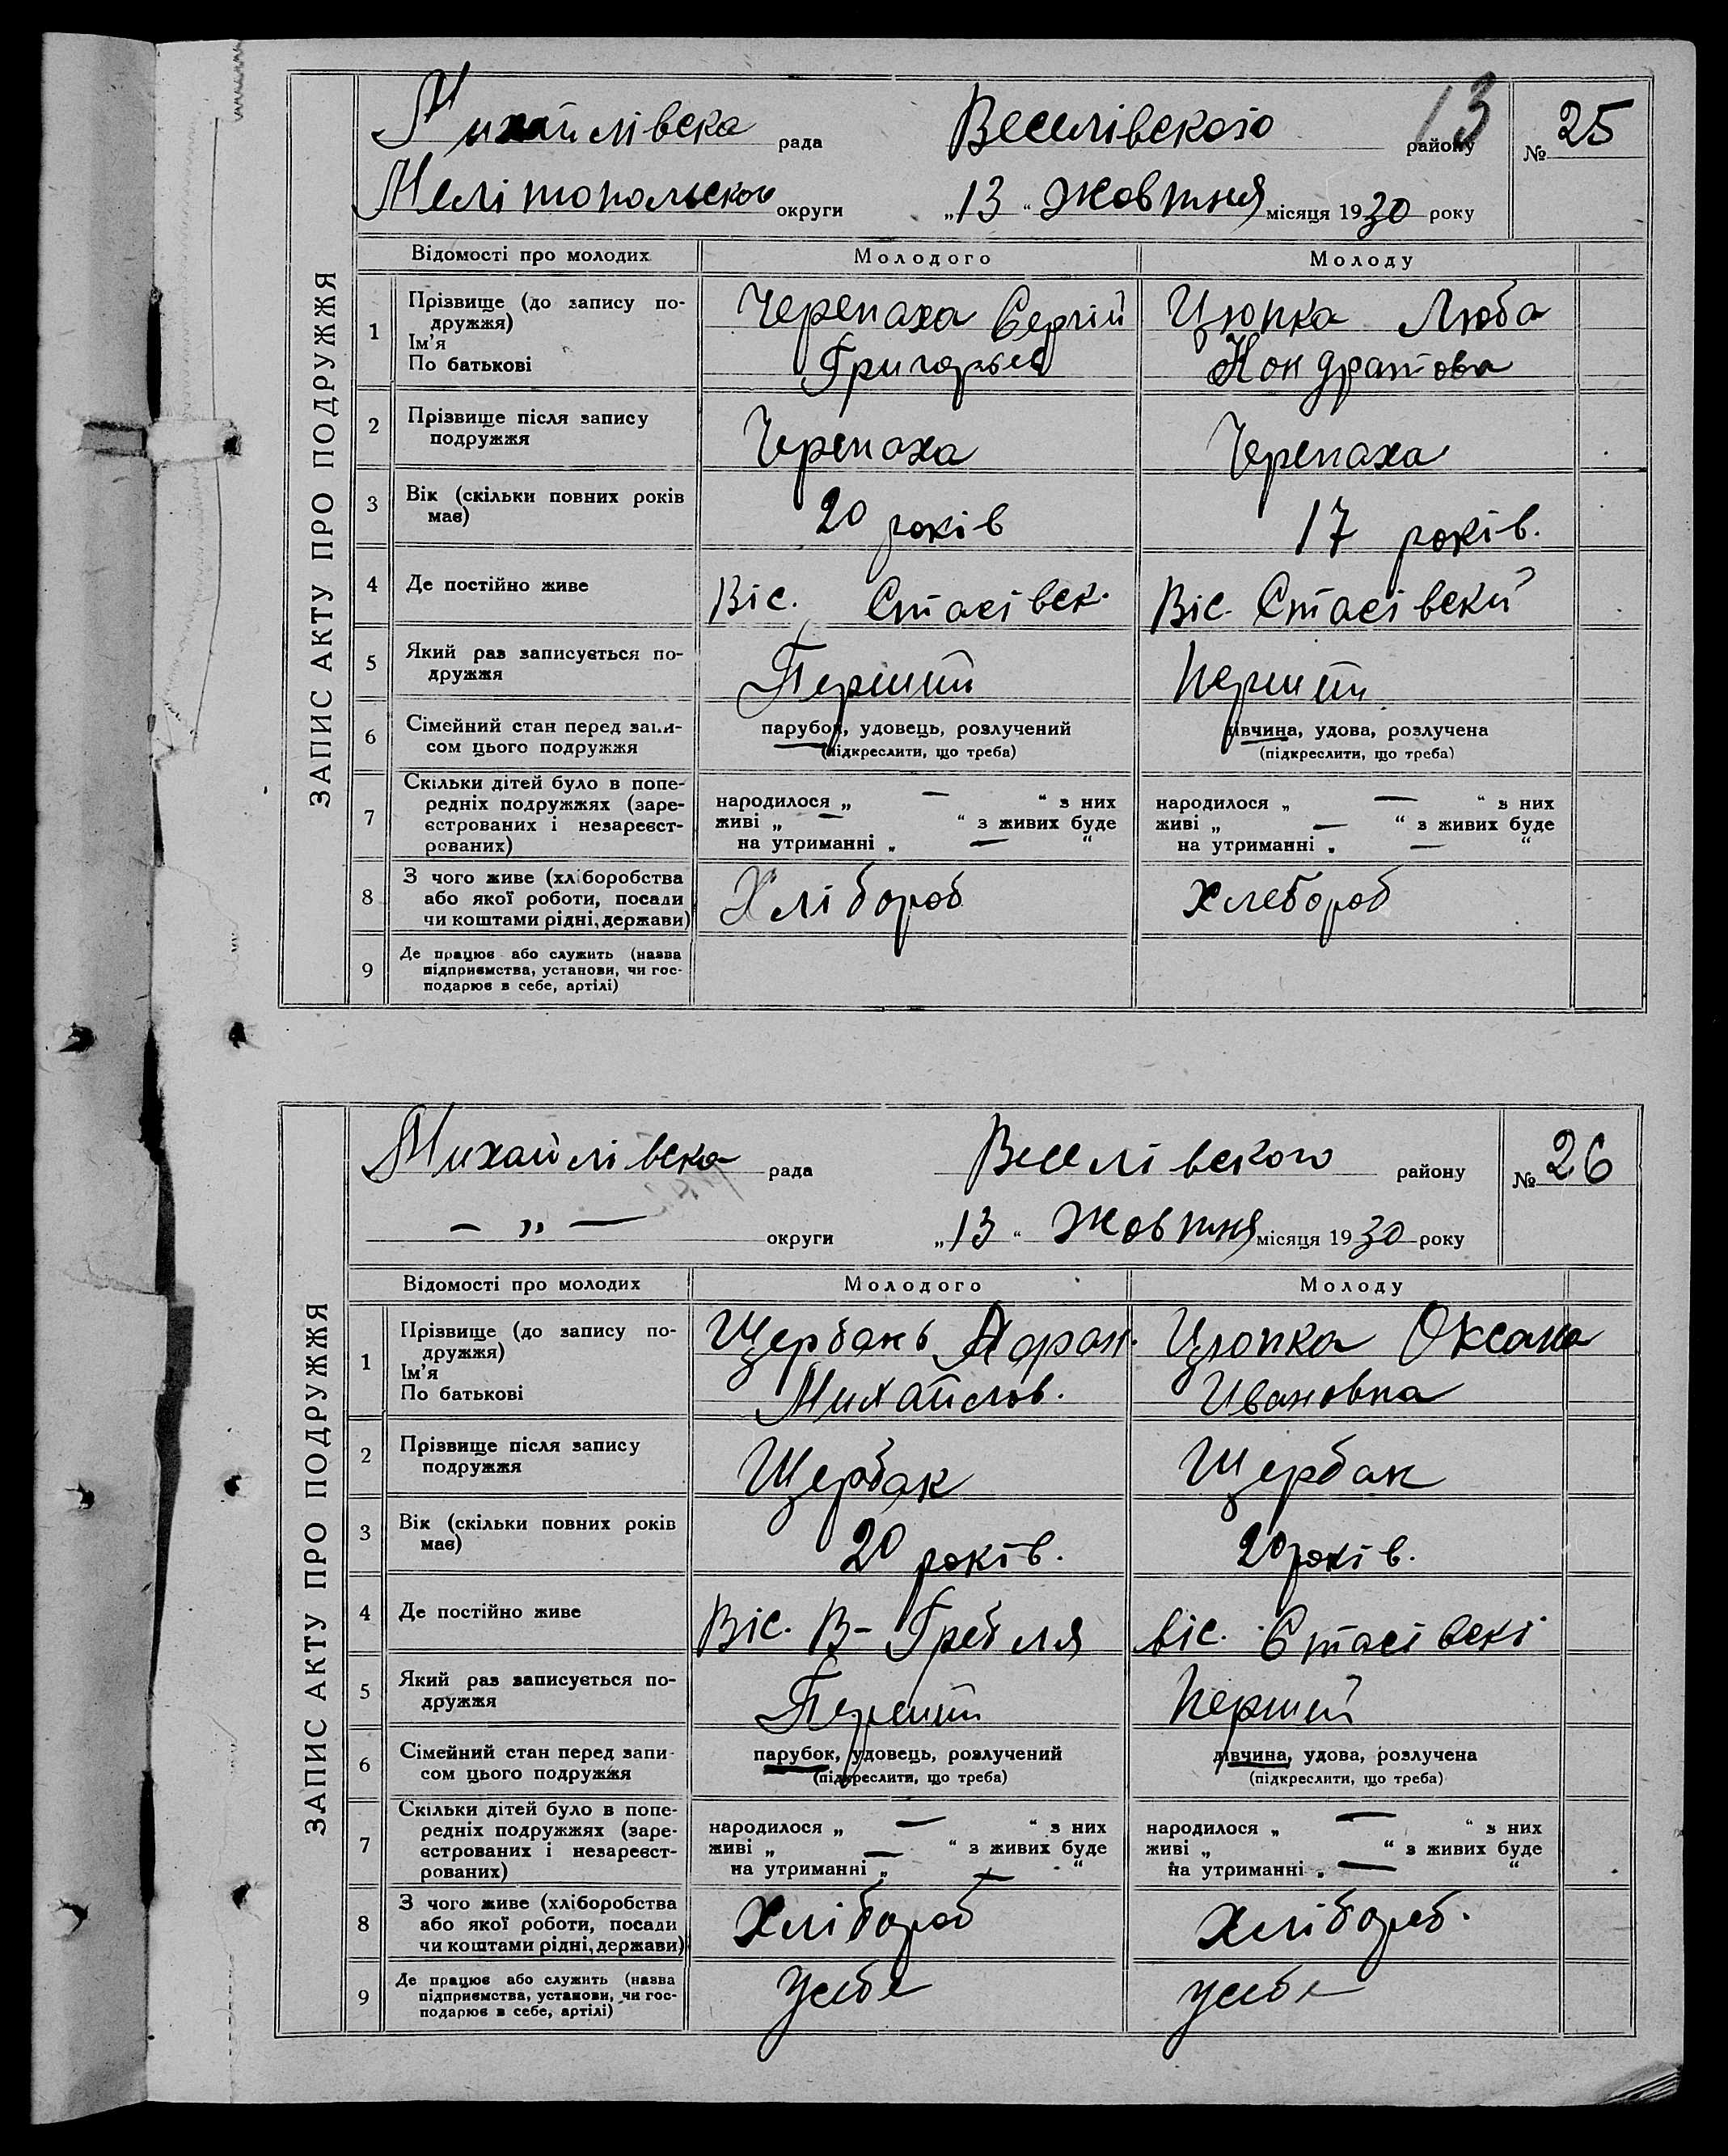 13
Михайлівска рада Веселівского району № 25
Мелітопольскої округи „13“ Жовтня місяця 1930 року
ЗАПИС АКТУ ПРО ПОДРУЖЖЯ
Відомості про молодих Молодого Молоду
1 Прізвище (до запису по-
дружжя)
Ім'я
По батькові
Черепаха Сергій
Григорьев
Цюпка Люба
Кондратова
2 Прізвище після запису
подружжя
Черепаха
Черепаха
3 Вік (скільки повних років
має)
20 років
17 років.
4 Де постійно живе
Віс. Стасівск.
Віс. Стасівскй
5 Який раз записується по-
дружжя
Перший
Перший
6 Сімейний стан перед запи-
сом цього подружжя
парубок, удовець, розлучений
(підкреслити, що треба)
дівчина, удова, розлучена
(підкреслити, що треба)
7 Скільки дітей було в попе-
редніх подружжях (заре-
єстрованих і незареєст-
рованих)
народилося „ — “ з них
живі „ — “ з живих буде
на утриманні „ — “
народилося „ — “ з них
живі „ — “ з живих буде
на утриманні „ — “
8 З чого живе (хліборобства
або якої роботи, посади
чи коштами рідні, держави)
Хлібороб
Хлебороб
9 Де працює або служить (назва
підприємства, установи, чи гос-
подарює в себе, артілі)
Михайлівска рада Веселівского району № 26
— „ — округи „13“ Жовтня місяця 1930 року
ЗАПИС АКТУ ПРО ПОДРУЖЖЯ
Відомості про молодих Молодого Молоду
1 Прізвище (до запису по-
дружжя)
Ім'я
По батькові
Щербань
Михайлов.
Цюпка Оксана
Ивановна
2 Прізвище після запису
подружжя
Щербак
Щербак
3 Вік (скільки повних років
має)
20 років.
20 років.
4 Де постійно живе
Віс. В-Гребля
Віс. Стасівскі
5 Який раз записується по-
дружжя
Перший
Перший
6 Сімейний стан перед запи-
сом цього подружжя
парубок, удовець, розлучений
(підкреслити, що треба)
дівчина, удова, розлучена
(підкреслити, що треба)
7 Скільки дітей було в попе-
редніх подружжях (заре-
єстрованих і незареєст-
рованих)
народилося „ — “ з них
живі „ — “ з живих буде
на утриманні „ — “
народилося „ — “ з них
живі „ — “ з живих буде
на утриманні „ — “
8 З чого живе (хліборобства
або якої роботи, посади
чи коштами рідні, держави)
Хлібороб
Хлібороб.
9 Де працює або служить (назва
підприємства, установи, чи гос-
подарює в себе, артілі)
Усебе
Усебе